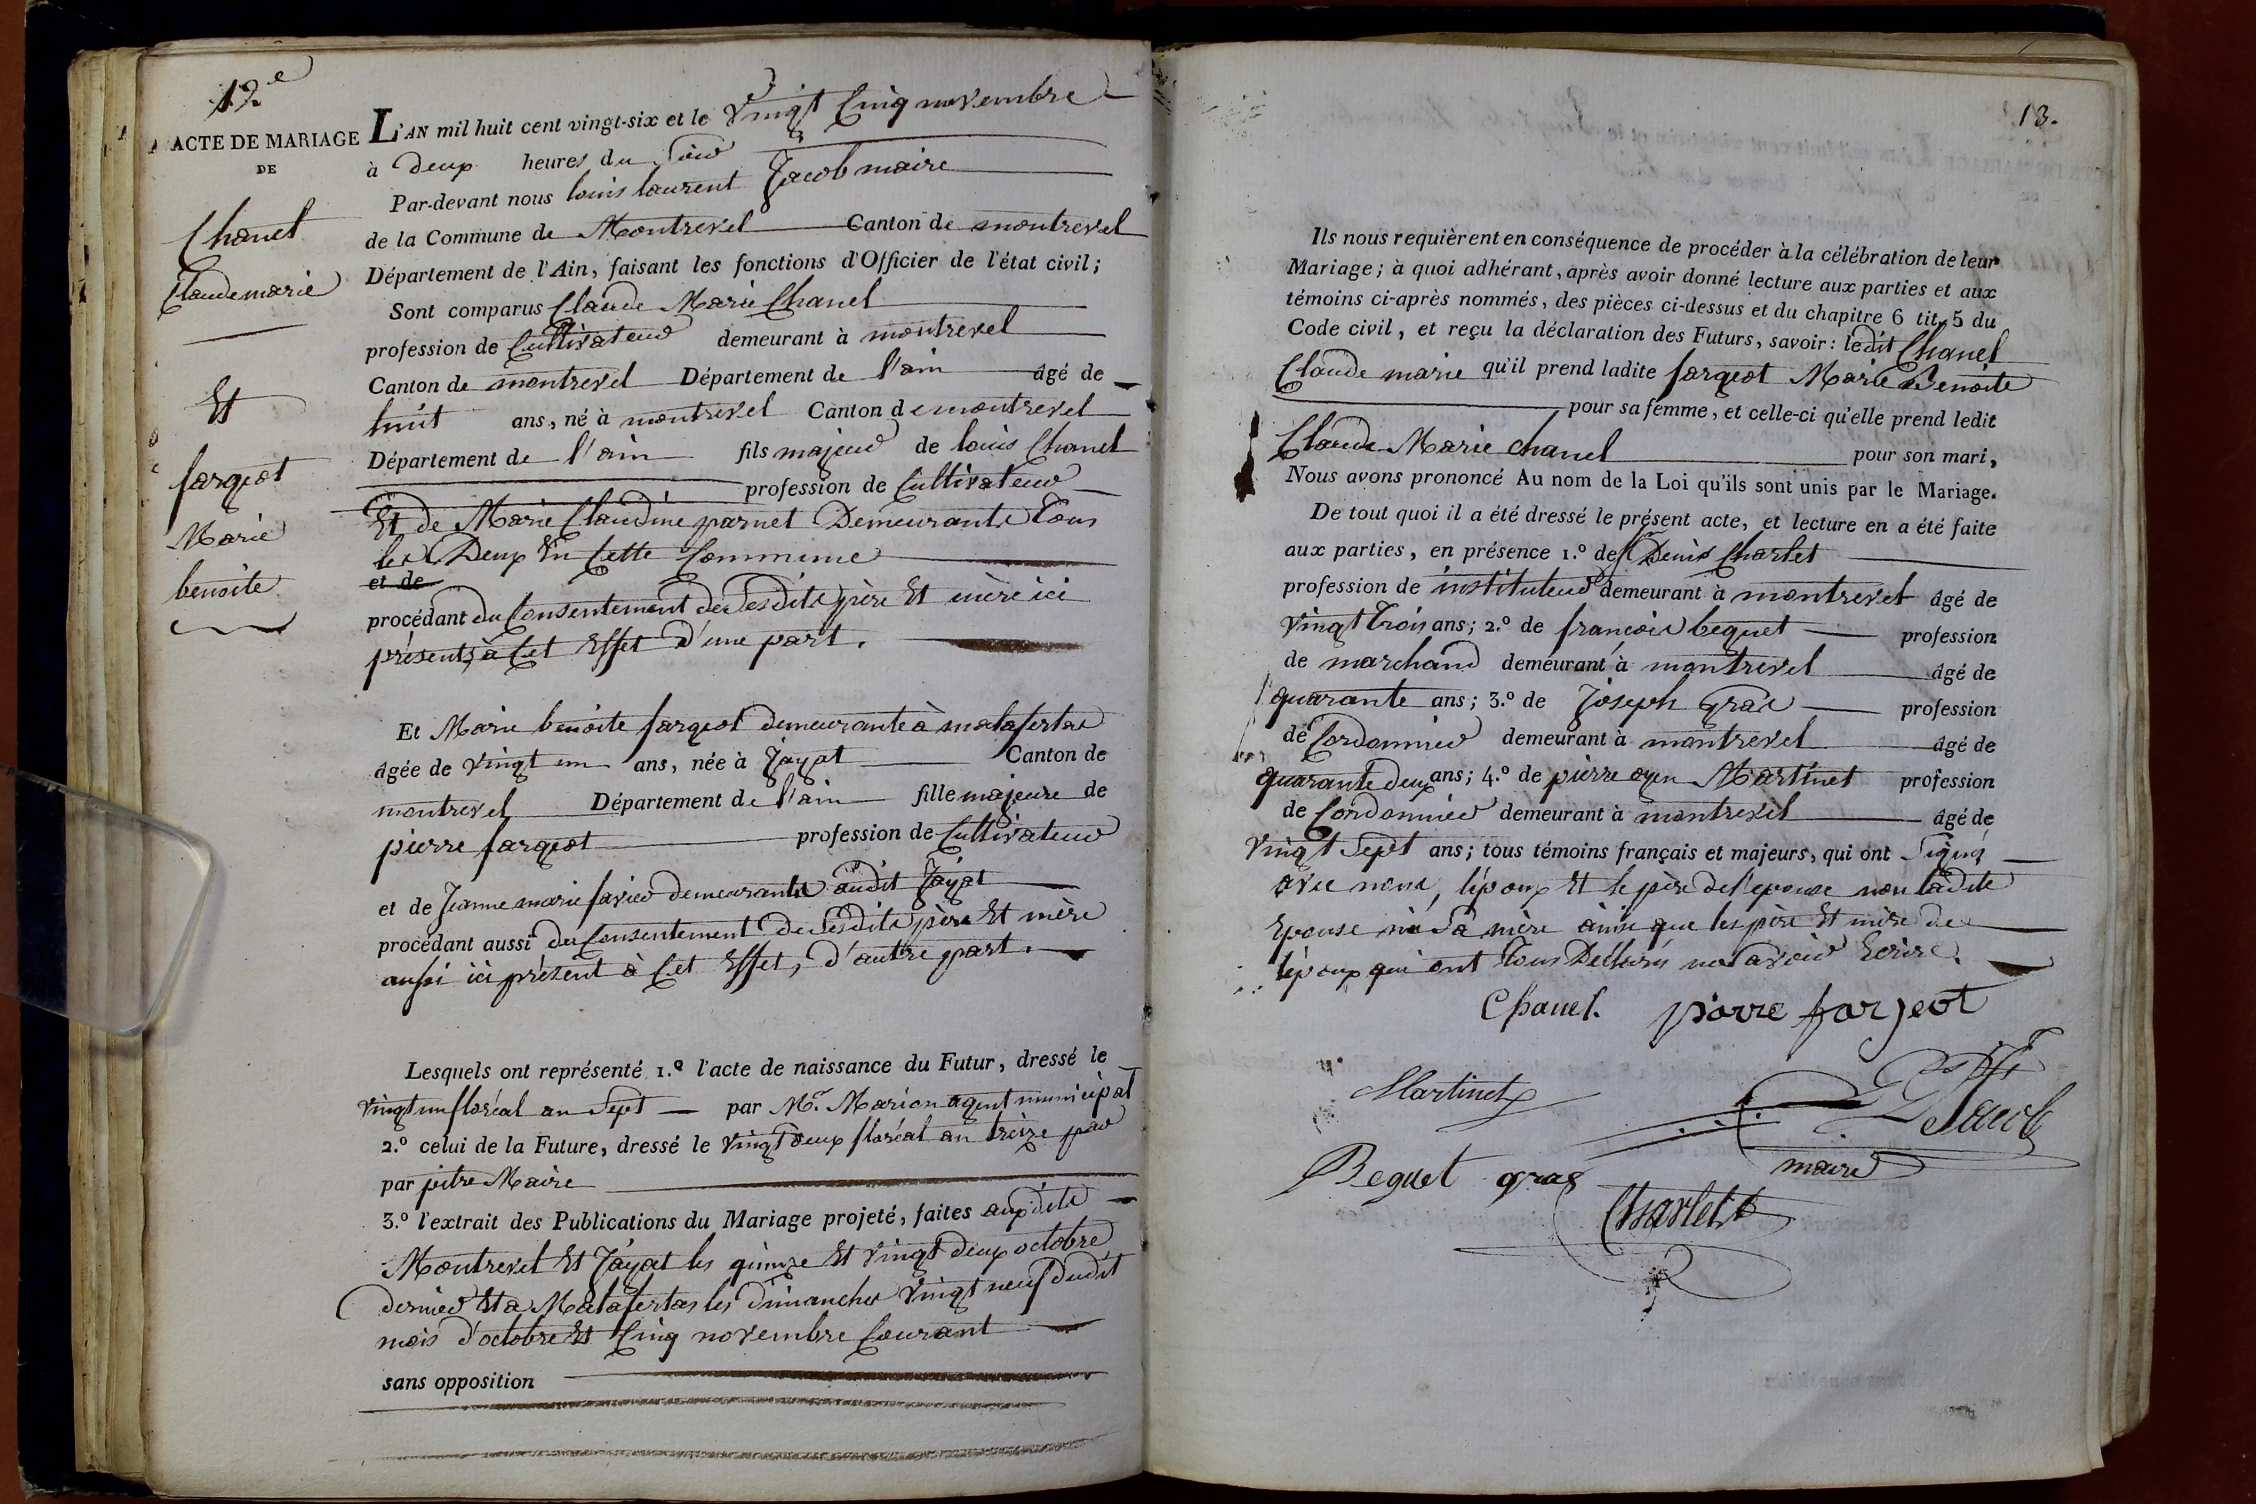 12.e
ACTE DE MARIAGE
DE
Chanel
Claude marie
Et
fargeot
Marie
benoite
L'AN mil huit cent vingt-six et le Vingt Cinq novembre
à deux heures du Soir
Par-devant nous louis laurent Jacob maire
de la Commune de Montrevel Canton de montrevel
Département de l'Ain, faisant les fonctions d'Officier de l'état civil;
Sont comparus Claude Marie Chanel
profession de Cultivateur demeurant à montrevel
Canton de montrevel Département de l'ain âgé de
huit ans, né à montrevel Canton de montrevel
Département de l'ain fils majeur de louis Chanel
profession de Cultivateur
Et de Marie Claudine parnet Demeurants Tous
les Deux En Cette Commune
et de
procédant du Consentement de Sesdits père Et mère ici
présents à Cet Effet d'une part.
Et Marie benoite fargeot demeurante à malafertas
âgée de vingt un ans, née à Jayat Canton de
montrevel Département de l'ain fille majeure de
pierre fargeot profession de Cultivateur
et de Jeanne marie favier demeurants audit Jayat
procédant aussi du Consentement de Sesdits père Et mère
aussi ici présent à Cet Effet, d'autre part.
Lesquels ont représenté 1.º l'acte de naissance du Futur, dressé le
vingt un floréal an Sept par Mr. Marion agent municipal
2.º celui de la Future, dressé le vingt deux floréal an treize par
par Maire
3.º l'extrait des Publications du Mariage projeté, faites auxdits
Montrevel Et Jayat les quinze Et vingt deux octobre
dernier Et a Malafertas les dimanches Vingt neuf dudit
mois d'octobre Et Cinq novembre Courant
sans opposition
13.
Ils nous requièrent en conséquence de procéder à la célébration de leur
Mariage; à quoi adhérant, après avoir donné lecture aux parties et aux
témoins ci-après nommés, des pièces ci-dessus et du chapitre 6 tit. 5 du
Code civil, et reçu la déclaration des Futurs, savoir: ledit Chanel
Claude marie qu'il prend ladite fargeot Marie Benoite
pour sa femme, et celle-ci qu'elle prend ledit
Claude Marie chanel pour son mari,
Nous avons prononcé Au nom de la Loi qu'ils sont unis par le Mariage.
De tout quoi il a été dressé le présent acte, et lecture en a été faite
aux parties, en présence 1.º de Sr Denis Charlet
profession de instituteur demeurant à montrevel âgé de
vingt Trois ans; 2.º de françois beguet profession
de marchand demeurant à montrevel âgé de
quarante ans; 3.º de Joseph Gras profession
de Cordonnier demeurant à montrevel âgé de
quarante deux ans; 4.º de pierre ayen Martinet profession
de Cordonnier demeurant à montrevel âgé de
vingt Sept ans; tous témoins français et majeurs, qui ont Signé
avec nous, l'époux Et le père de l'epouse non ladite
Epouse ni Sa mère ainsi que les père Et mère de
l'époux qui ont Tous Déclarés ne Savoir Ecrire.
Chanel. piorre fargeot
Martinet
Jacob
maire
Beguet gras
Charlet